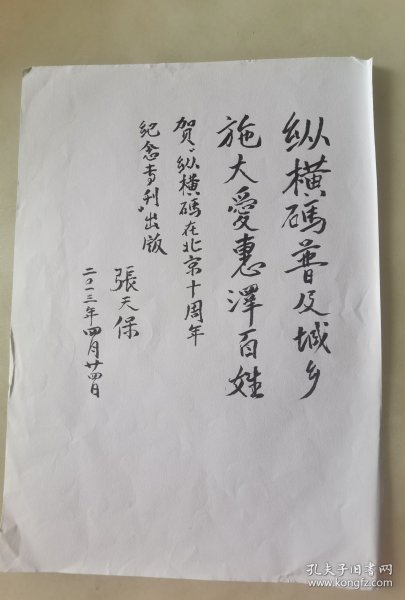 纵横碼普及城乡
施大愛惠澤百姓
賀“纵横碼在北京十周年
紀念专刊”出版
張天保
二〇一三年四月廿四日
孔夫子旧书网
www.kongfz.com